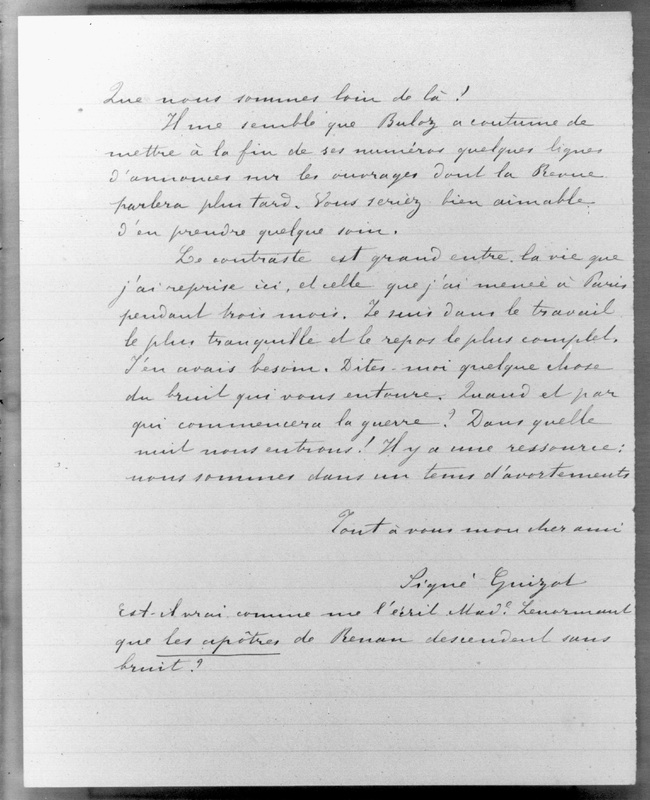 Que nous sommes loin de là !
Il me semble que Buloz a coutume de
mettre à la fin de ses numéros quelques lignes
d'annonces sur les ouvrages dont la Revue
parlera plus tard. Vous seriez bien aimable
d'en prendre quelque soin.
Le contraste est grand entre la vie que
j'ai reprise ici, et celle que j'ai menée à Paris
pendant trois mois. Je suis dans le travail
le plus tranquille et le repos le plus complet.
J'en avais besoin. Dites-moi quelque chose
du bruit qui vous entoure. Quand et par
qui commencera la guerre ? Dans quelle
nuit nous entrons ! Il y a une ressource :
nous sommes dans un tems d'avortements
Tout à vous mon cher ami
Signé Guizot
Est-il vrai comme me l'écrit Made. Lenormant
que les apôtres de Renan descendent sans
bruit ?